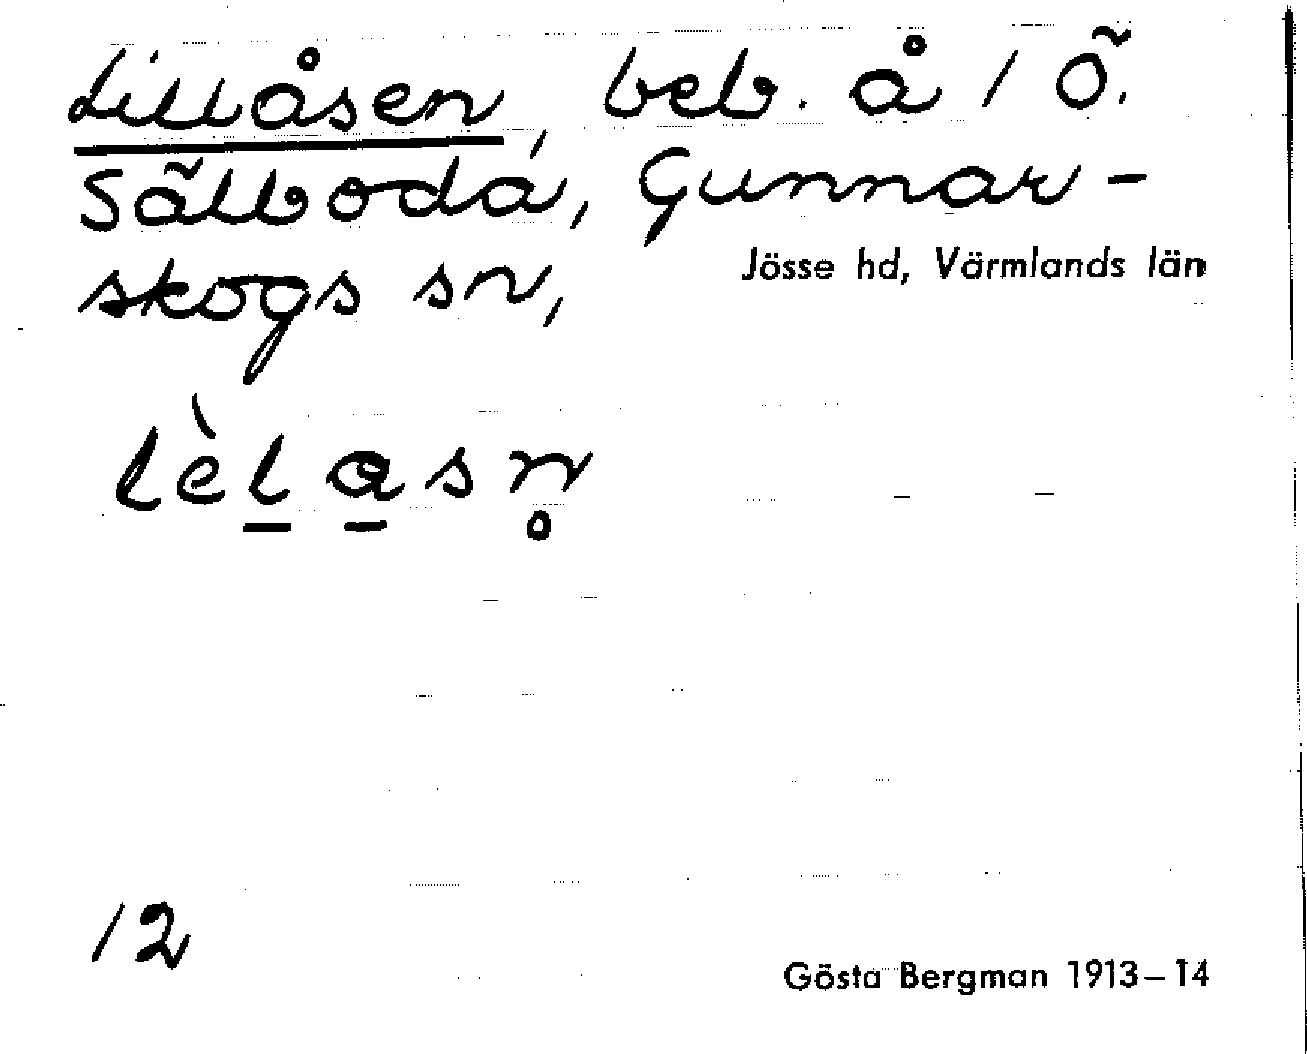 Lillåsen, beb. å 1 Ö.
Sälboda, Gunnar-
skogs sn,
Jösse hd, Värmlands län
lèlasn̥
12
Gösta Bergman 1913–14